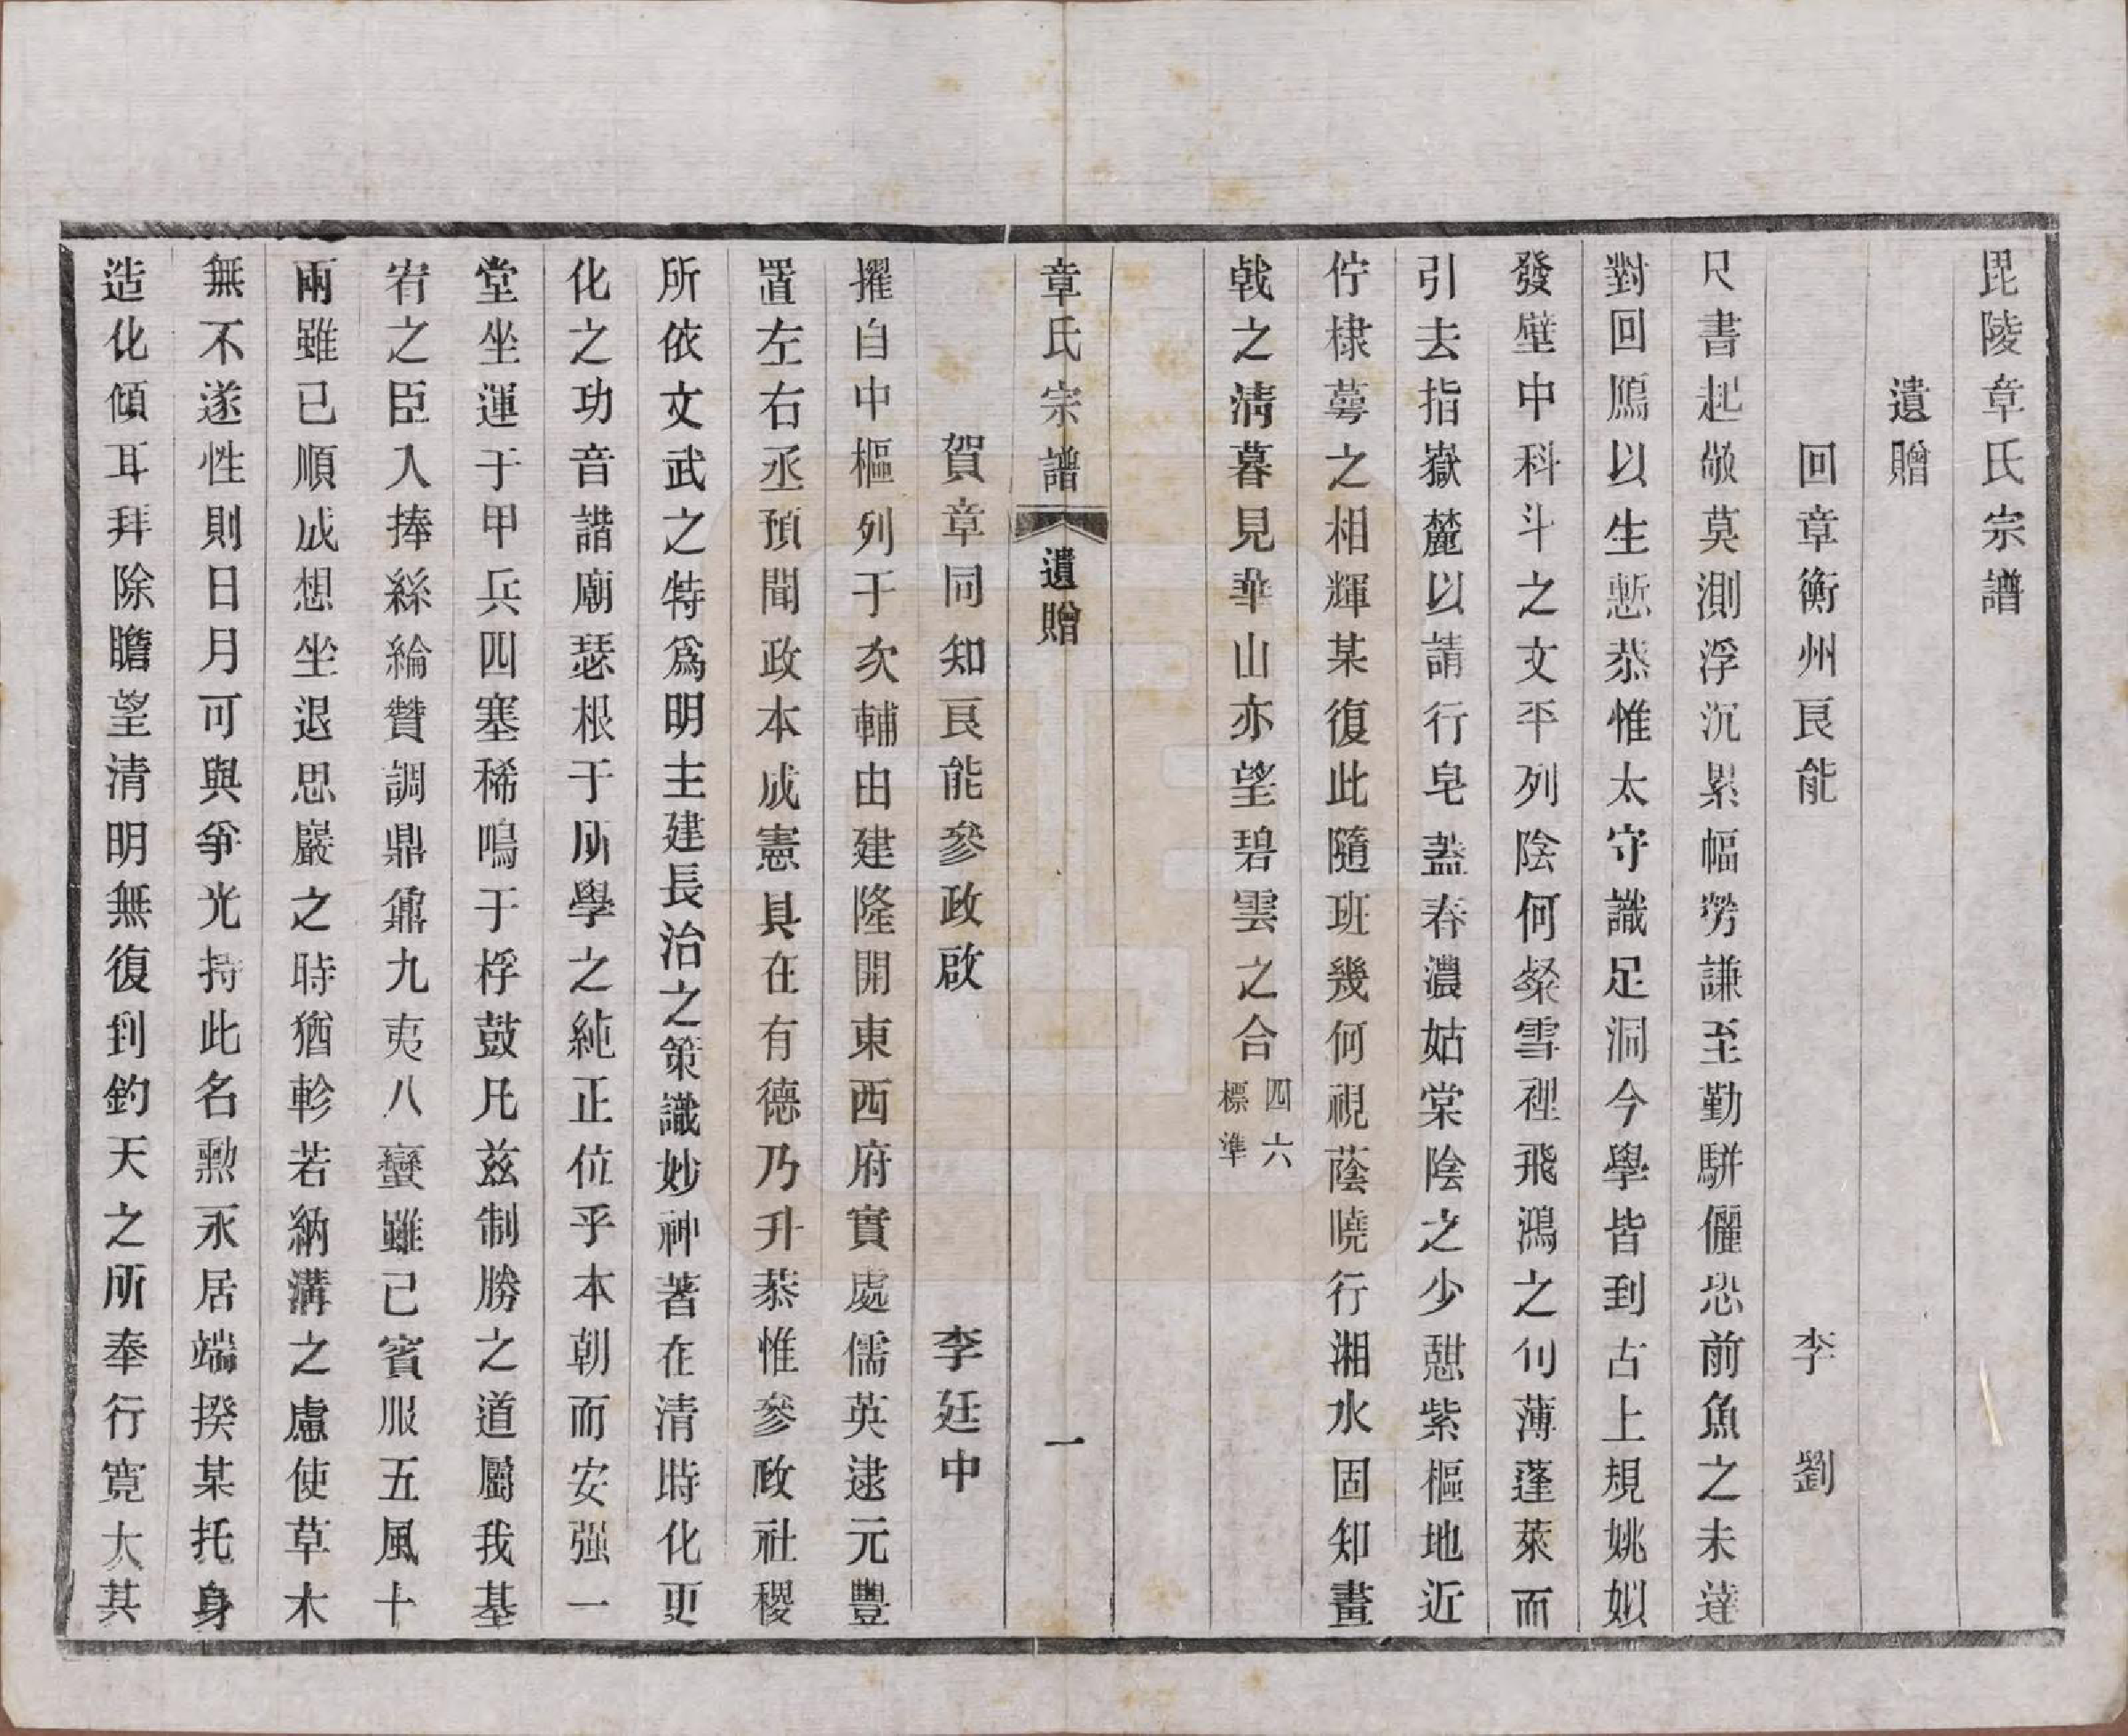 毘陵章氏宗譜
遺贈
回章衡州良能 李劉
尺書起敬莫測浮沉累幅勞謙至勤駢儷恐前魚之未達
對回鴈以生慙恭惟太守識足洞今學皆到古上規姚姒
發壁中科斗之文平列陰何粲雪裡飛鴻之句薄蓬萊而
引去指嶽麓以請行皂葢春濃姑棠陰之少憇紫樞地近
佇棣萼之相輝某復此隨班幾何視蔭曉行湘水固知畫
戟之清暮見華山亦望碧雲之合四六標準
章氏宗譜 遺贈 一
賀章同知良能參政啟 李廷中
擢自中樞列于次輔由建隆開東西府實處儒英逮元豐
置左右丞預聞政本成憲具在有德乃升恭惟參政社稷
所依文武之特爲明主建長治之策識妙神蓍在清時化更
化之功音諧廟瑟根于所學之純正位乎本朝而安强一
堂坐運于甲兵四塞稀鳴于桴鼓凡茲制勝之道屬我基
宥之臣入捧絲綸贊調鼎鼐九夷八蠻雖已賓服五風十
兩雖已順成想坐退思巖之時猶軫若納溝之慮使草木
無不遂性則日月可與爭光持此名勲永居端揆某托身
造化傾耳拜除瞻望清明無復到鈞天之所奉行寬大其